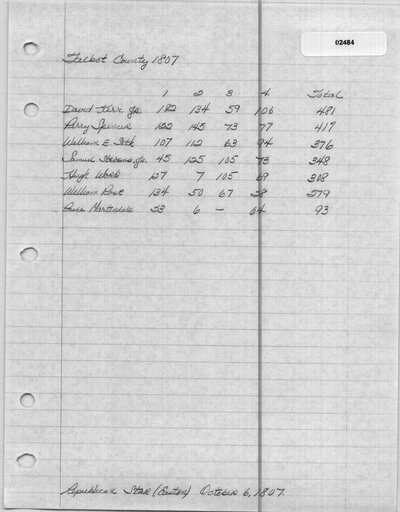 02484
Talbot County 1807
1 2 3 4 Total
David Kerr, Jr. 182 134 59 106 481
Perry Spencer 122 145 73 77 417
William E. Seth 107 112 63 94 376
Samuel Stevens, Jr. 45 125 105 73 348
Hugh 127 7 105 69 308
William Rose 134 50 67 28 279
Martindale 23 6 — 64 93
Republican Star (Easton) October 6, 1807.